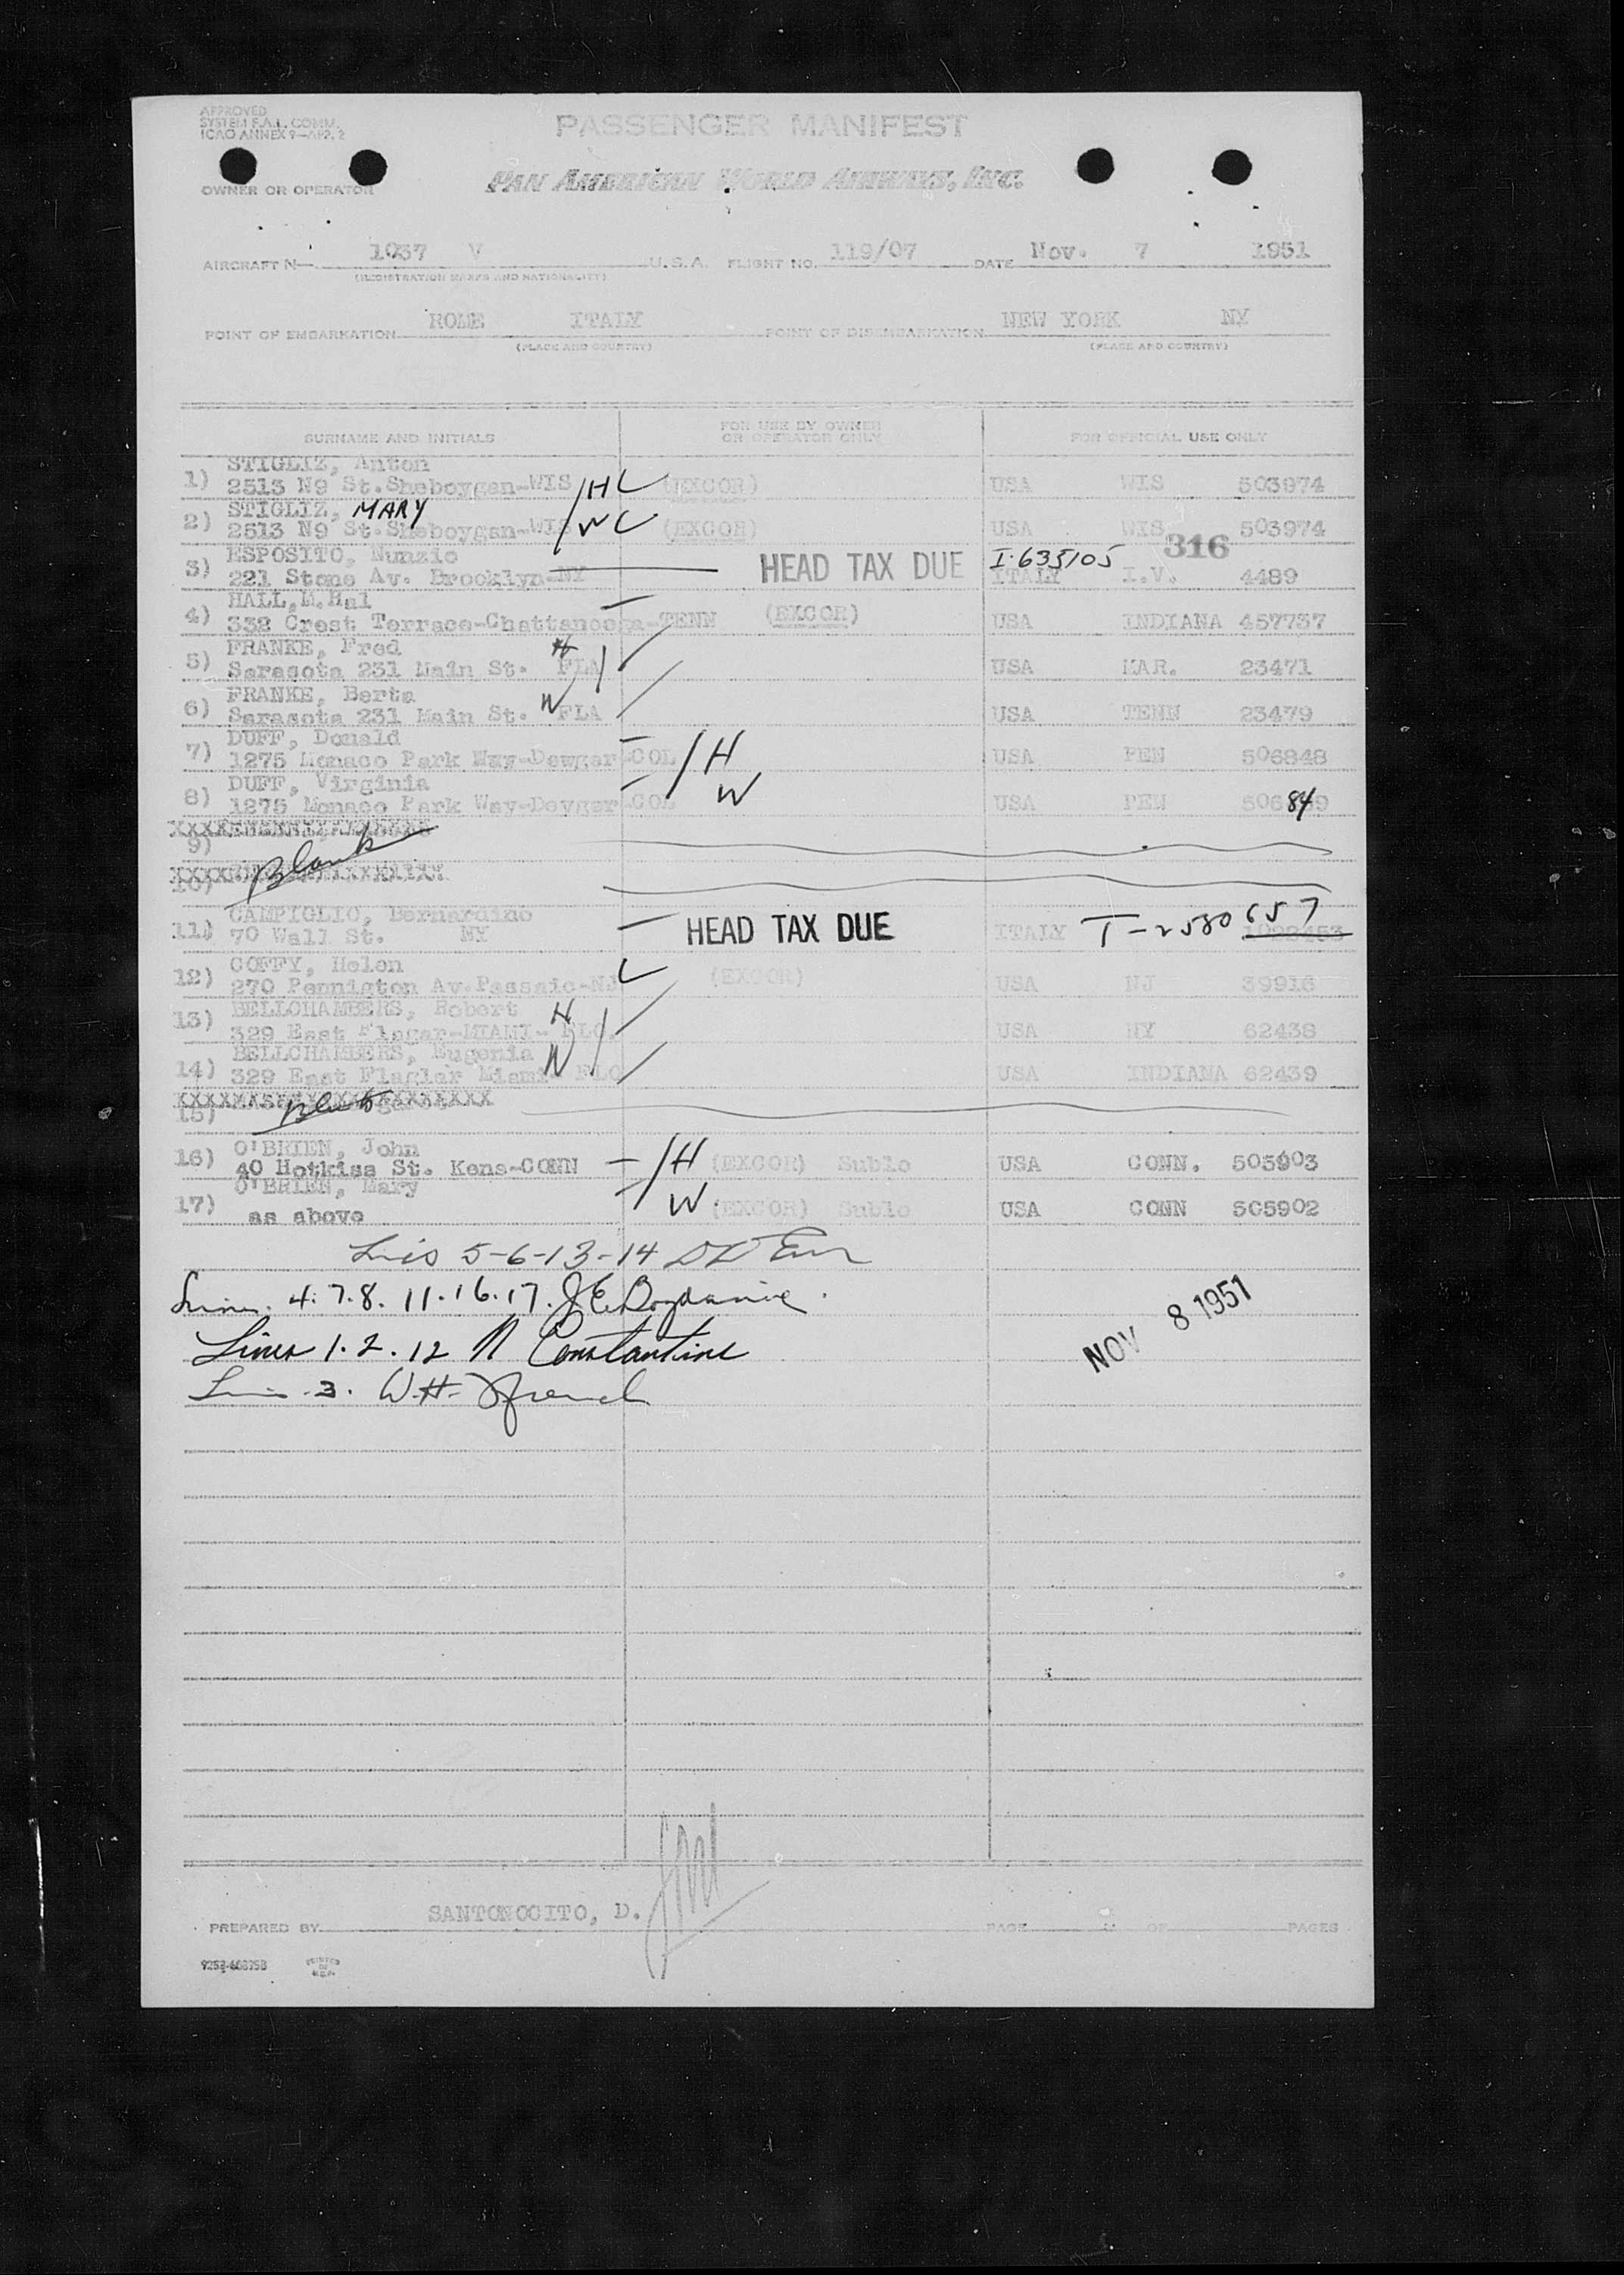 APPROVED
SYSTEM F.A.L. COMM.
ICAO ANNEX 9—APP. 2
PASSENGER MANIFEST
OWNER OR OPERATOR
PAN AMERICAN WORLD AIRWAYS, INC.
AIRCRAFT N— 1037 V U.S.A. FLIGHT NO. 119/07 DATE Nov. 7 1951
(REGISTRATION MARKS AND NATIONALITY)
POINT OF EMBARKATION ROME ITALY POINT OF DISEMBARKATION NEW YORK NY
(PLACE AND COUNTRY) (PLACE AND COUNTRY)
SURNAME AND INITIALS FOR USE BY OWNER OR OPERATOR ONLY FOR OFFICIAL USE ONLY
STIGLIZ, Anton
1) 2513 N9 St.Sheboygan-WIS H (EXCOR) USA WIS 503974
STIGLIZ, MARY
2) 2513 N9 St.Sheboygan-WIS W (EXCOR) USA WIS 503974
ESPOSITO, Nunzio HEAD TAX DUE I-635105 316
3) 221 Stone Av. Brooklyn-NY ITALY I.V. 4489
HALL,M.Hal
4) 332 Crest Terrace-Chattanooga-TENN (EXCOR) USA INDIANA 457737
FRANKE, Fred H
5) Sarasota 231 Main St. FLA USA MAR. 23471
FRANKE, Berta W
6) Sarasota 231 Main St. FLA USA TENN 23479
DUFF, Donald
7) 1275 Monaco Park Way-Dewger-COL H USA PEN 506848
DUFF, Virginia
8) 1275 Monaco Park Way-Deyger-COL W USA PEN 506849
9)
Blank
10)
CAMPIGLIO, Bernardino
11) 70 Wall St. NY HEAD TAX DUE ITALY T-2580657
COFFY, Helen
12) 270 Pennigton Av.Passaic-NJ (EXCOR) USA NJ 39916
BELLCHAMBERS, Robert H
13) 329 East Flagar-MIAMI- FLO. USA NY 62438
BELLCHAMBERS, Eugenia W
14) 329 East Flaglar Miami- FLO USA INDIANA 62439
15)
O'BRIEN, John
16) 40 Hotkiss St. Kens-CONN H (EXCOR) Sublo USA CONN. 505903
O'BRIEN, Mary
17) as above W (EXCOR) Sublo USA CONN 505902
5-6-13-14
4.7.8. 11.16.17.
Lines 1.2.12 N Constantine
3. W.H. French
NOV 8 1951
PREPARED BY SANTONOCITO, D. PAGE OF PAGES
PRINTED
IN
U.S.A.